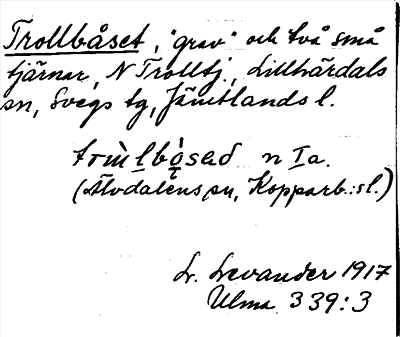 Trollbåset, "grav" och två små
tjärnar, N Trolltj., Lillhärdals
sn, Svegs tg, Jämtlands l.
n Ia.
(Älvdalens sn, Kopparb:s l.)
L. Levander 1917
Ulma 339:3